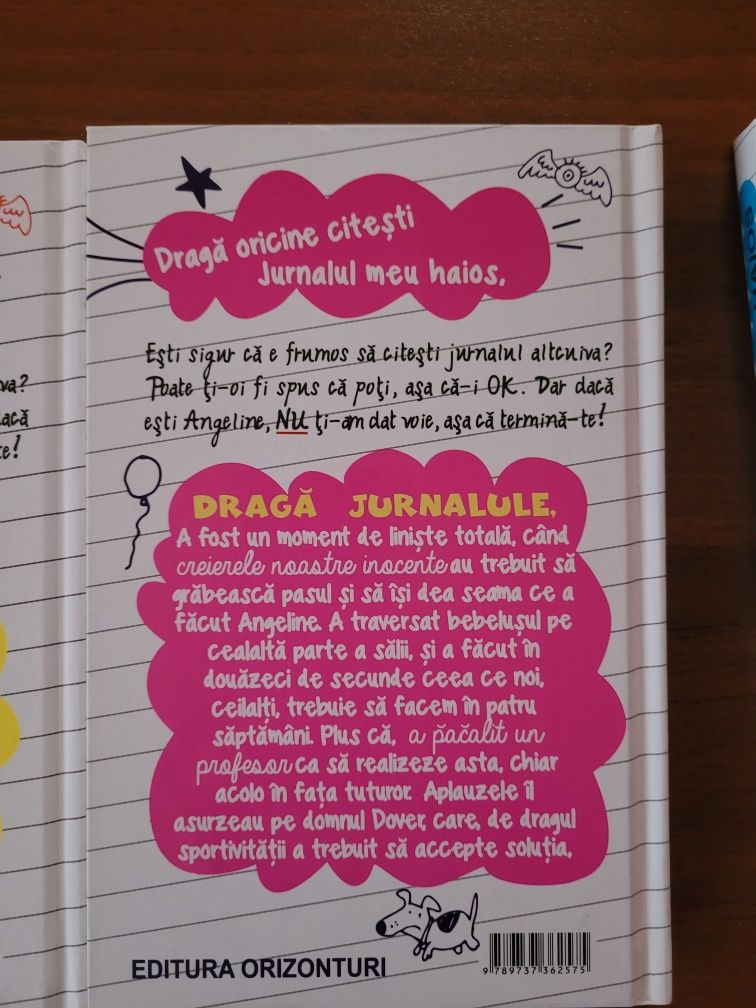 Dragă oricine citești
Jurnalul meu haios,
Ești sigur că e frumos să citești jurnalul altcuiva?
Poate ți-oi fi spus că poți, așa că-i OK. Dar dacă
ești Angeline, NU ți-am dat voie, așa că termină-te!
DRAGĂ JURNALULE,
A fost un moment de liniște totală, când
creierele noastre inocente au trebuit să
grăbească pasul și să își dea seama ce a
făcut Angeline. A traversat bebelușul pe
cealaltă parte a sălii, și a făcut în
douăzeci de secunde ceea ce noi,
ceilalți, trebuie să facem în patru
săptămâni. Plus că, a păcălit un
profesor ca să realizeze asta, chiar
acolo în fața tuturor. Aplauzele îl
asurzeau pe domnul Dover, care, de dragul
sportivității a trebuit să accepte soluția.
EDITURA ORIZONTURI
9 789737 362575
va?
acă
e!